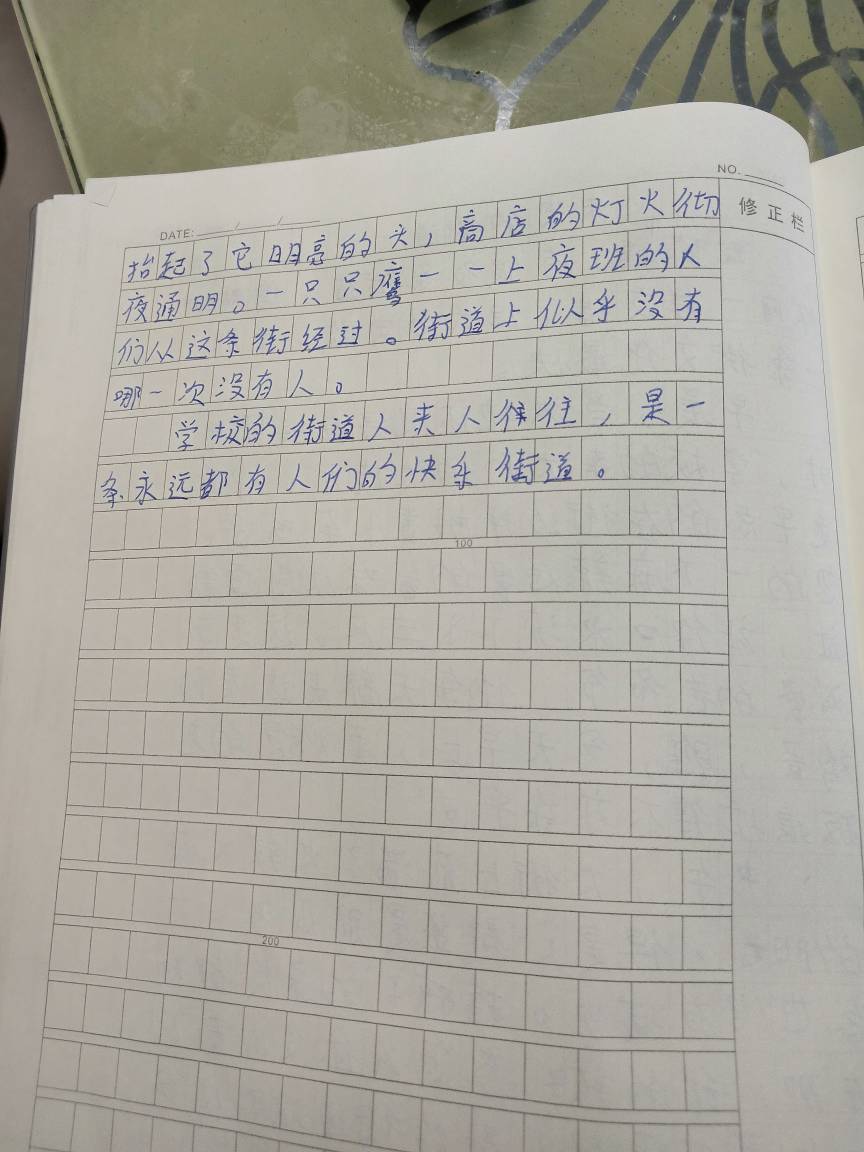 NO.
DATE: / /
修正栏
抬起了它明亮的头,商店的灯火彻
夜通明。一只只鹰一一上夜班的人
们从这条街经过。街道上似乎没有
哪一次没有人。
学校的街道人来人往,是一
条永远都有人们的快乐街道。
100
200